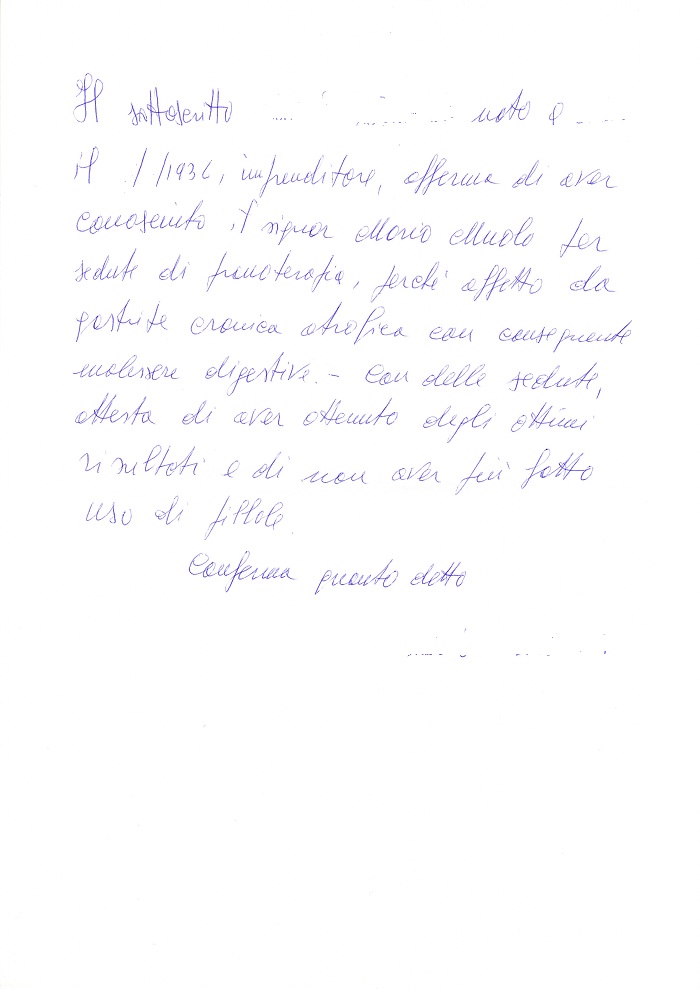 Il sottoscritto nato a
il / /1936, imprenditore, afferma di aver
conosciuto il signor Mario Muolo per
sedute di pranoterapia, perché affetto da
gastrite cronica atrofica con conseguente
malessere digestive.- Con delle sedute,
attesta di aver ottenuto degli ottimi
risultati e di non aver più fatto
uso di pillole.
Conferma quanto detto